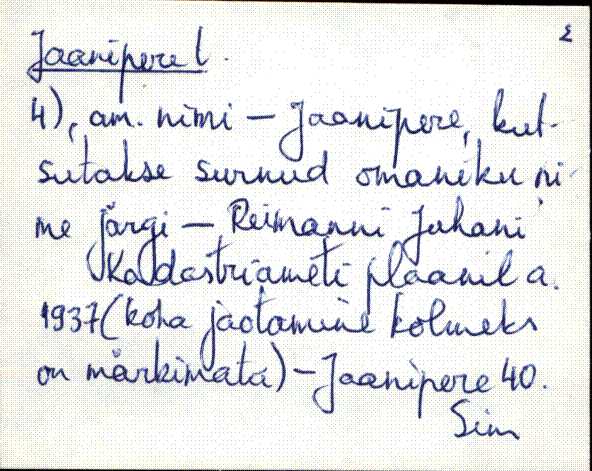 2
Jaanipere l.
4), am. nimi – Jaanipere, kut-
sutakse surnud omaniku ni-
me järgi – Reimanni Juhani
Kadastriameti plaanil a.
1937 (koha jaotamine kolmeks
on märkimata) – Jaanipere 40.
Sim